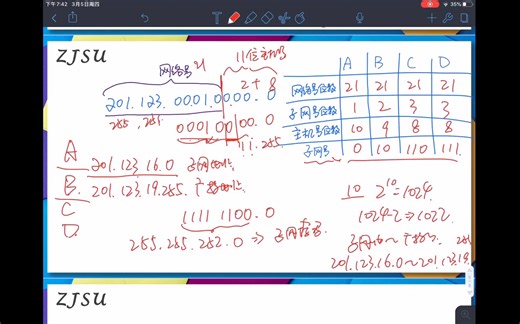 下午7:42 3月5日周四
35%
ZJSU
网络号 21
11位主机号
2+8
201.123.0001 0000.0
255.255.
0001 00 00.0
11.255
A 201.123.16.0 子网地址
B. 201.123.19.255. 广播地址
C
D.
1111 1100.0
255.255.252.0 => 子网掩码
A B C D
网络号位数 21 21 21 21
子网号位数 1 2 3 3
主机号位数 10 9 8 8
子网号 0 10 110 111
10 2^10=1024
1024-2=>1022
201.123.16.0~201.123.19.
ZJSU